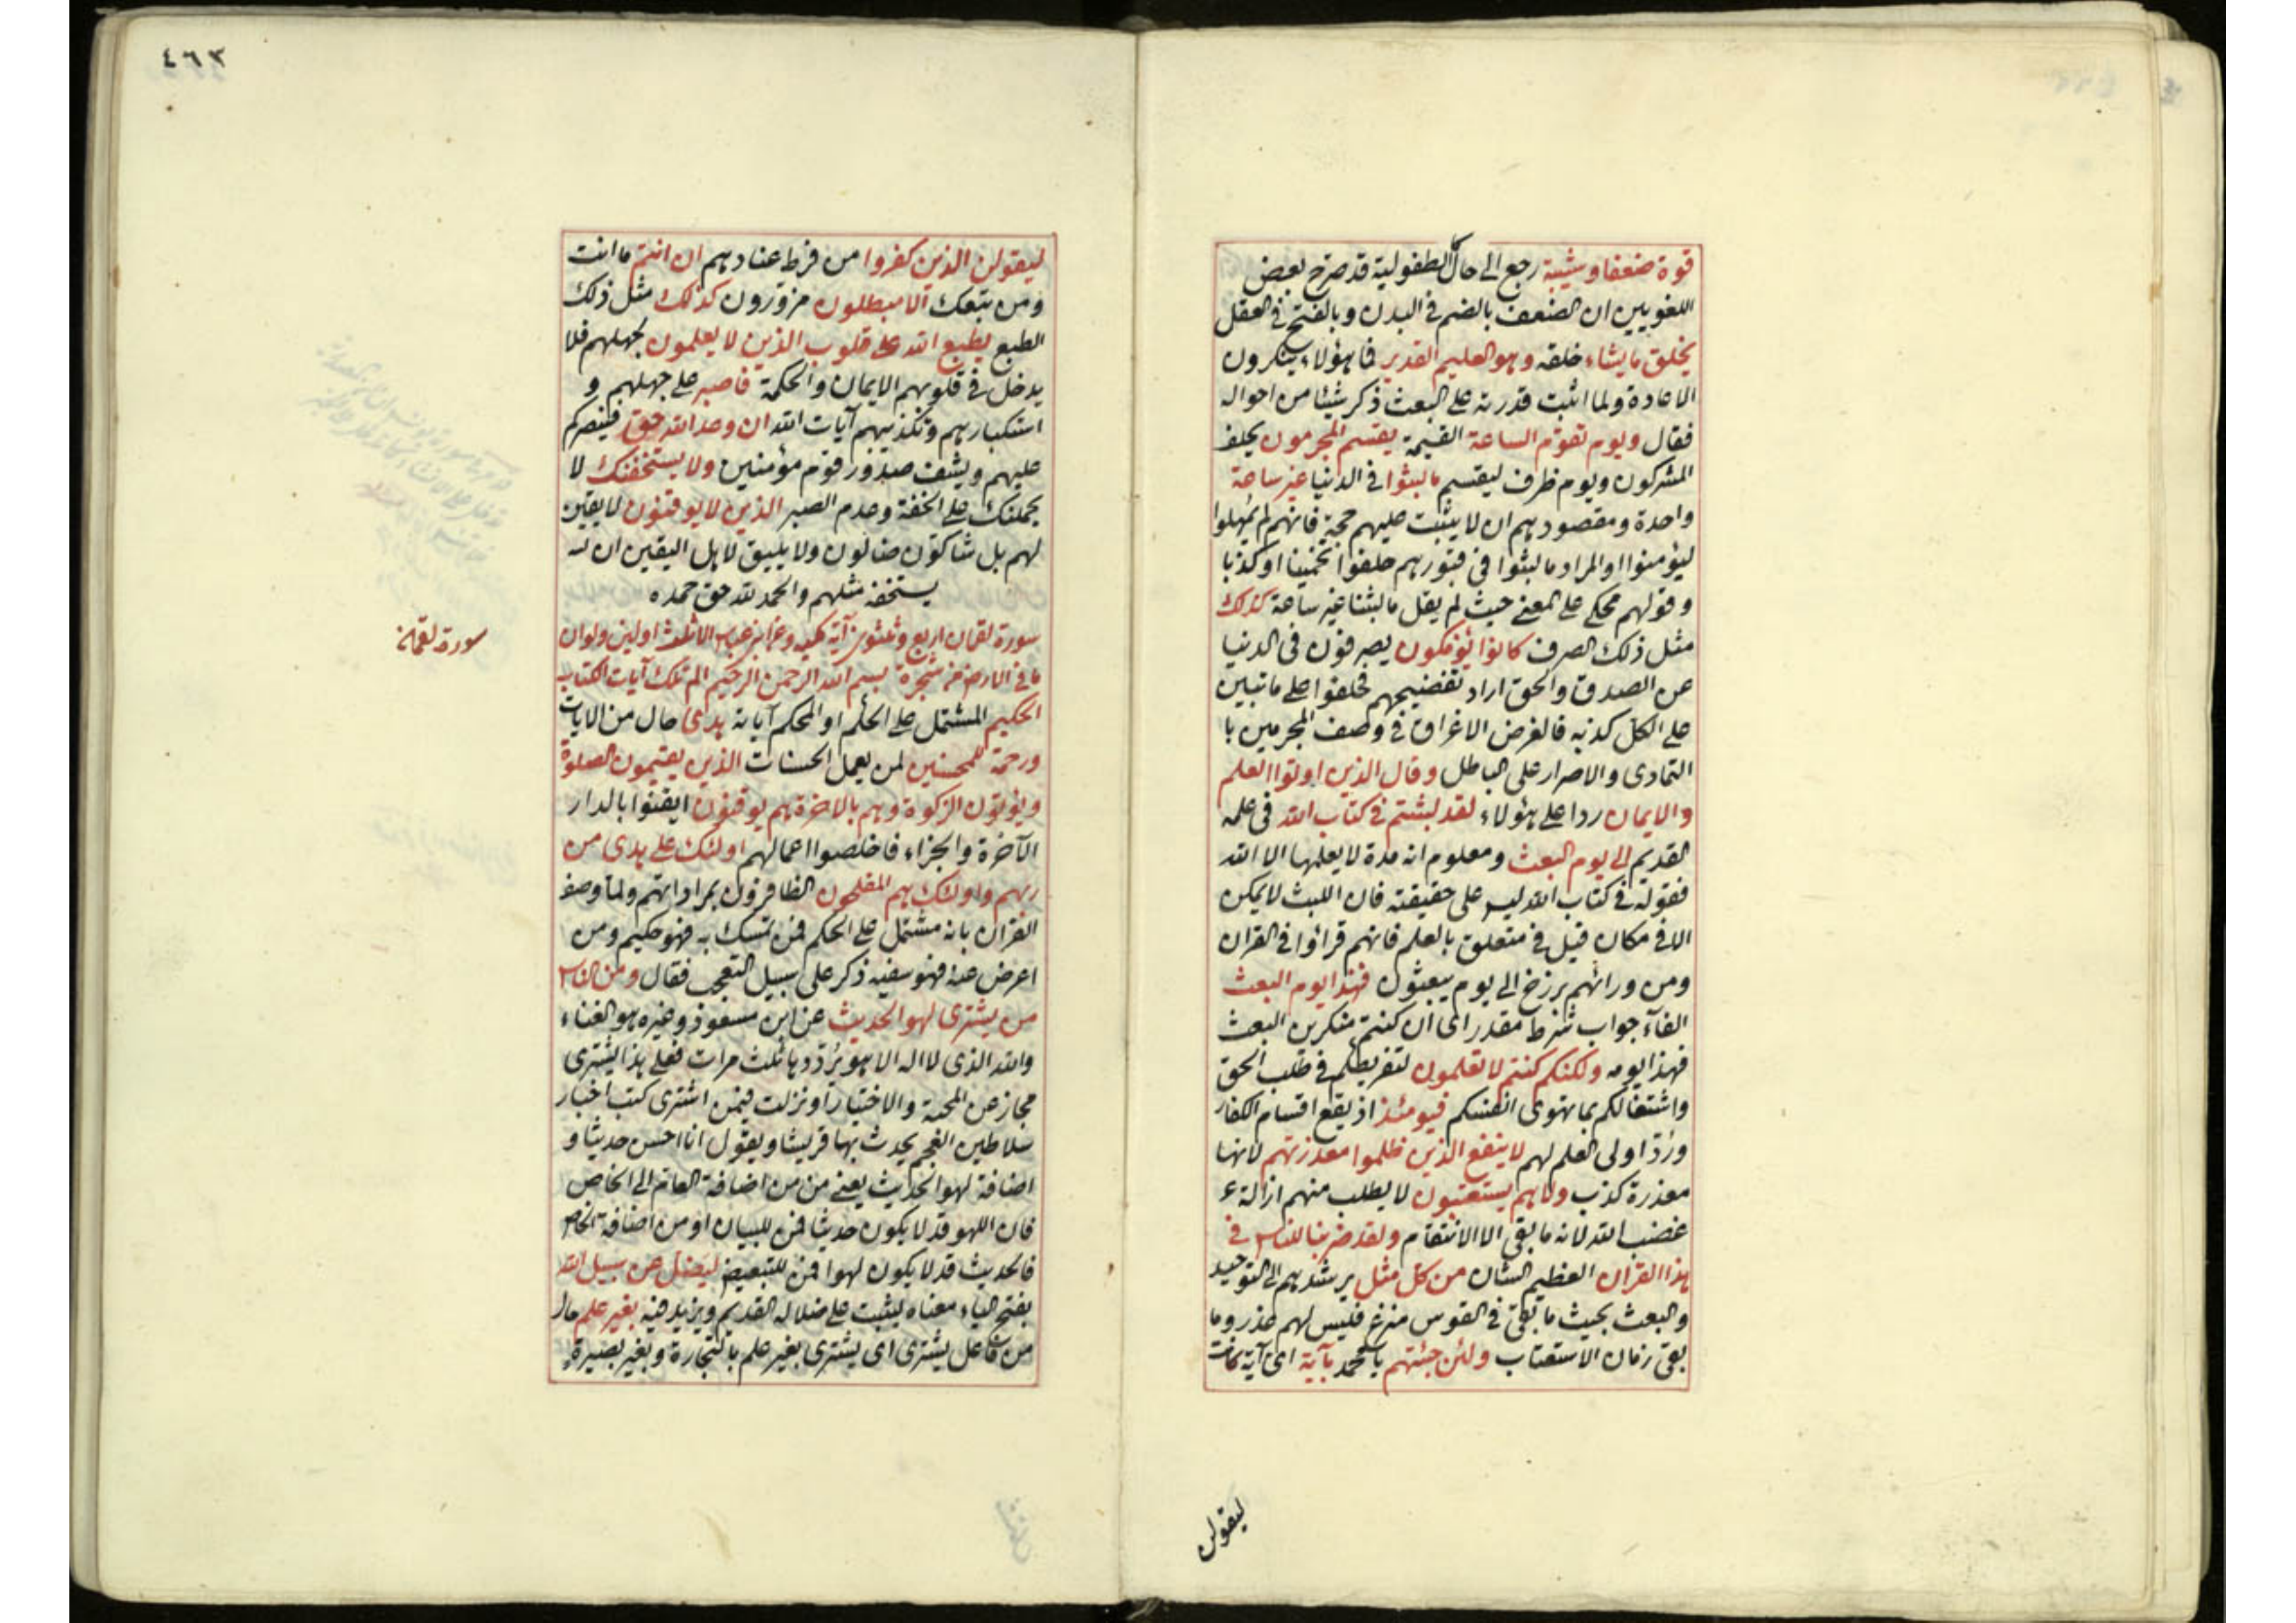 قوة ضعفا وشيبة رجع الى حال الطفولية قد صرح بعض
اللغويين ان الضعف بالضم في البدن وبالفتح في العقل
يخلق ما يشاء خلقه وهو العليم القدير فما هؤلاء ينكرون
الاعادة ولما اثبت قدرته على البعث ذكر شيئا من احواله
فقال ويوم تقوم الساعة القيمة يقسم المجرمون يحلف
المشركون ويوم ظرف ليقسم ما لبثوا في الدنيا غير ساعة
واحدة ومقصودهم ان لا يثبت عليهم حجة فانهم لم يمهلوا
ليؤمنوا او المراد ما لبثوا في قبورهم حلفوا تخمينا او كذبا
وقولهم محكى على المعنى حيث لم يقل ما لبثنا غير ساعة كذلك
مثل ذلك الصرف كانوا يؤفكون يصرفون في الدنيا
عن الصدق والحق اراد تفضيحهم فحلفوا على ما تبين
على الكل كذبه فالغرض الاغراق في وصف المجرمين با
التمادى والاصرار على الباطل وقال الذين اوتوا العلم
والايمان ردا على هؤلاء لقد لبثتم في كتاب الله في علمه
القديم الى يوم البعث ومعلوم انه مدة لا يعلمها الا الله
فقوله في كتاب الله ليس على حقيقته فان اللبث لا يمكن
الا في مكان قيل في متعلق بالعلم فانهم قرأوا في القران
ومن ورائهم برزخ الى يوم يبعثون فهذا يوم البعث
الفاء جواب شرط مقدر اى ان كنتم منكرين البعث
فهذا يومه ولكنكم كنتم لا تعلمون لتفريطكم في طلب الحق
واشتغالكم بما تهوى انفسكم فيومئذ اذ يقع اقسام الكفار
ورد اولى العلم لهم لا ينفع الذين ظلموا معذرتهم لانها
معذرة كذب ولا هم يستعتبون لا يطلب منهم ازالة
غضب الله لانه ما بقى الا الانتقام ولقد ضربنا للناس في
هذا القران العظيم الشان من كل مثل يرشدهم الى التوحيد
والبعث بحيث ما بقى في القوس منزع فليس لهم عذر وما
بقى زمان الاستعتاب ولئن جئتهم يا محمد بآية اى آية كانت
ليقولن
٤٦٣
ليقولن الذين كفروا من فرط عنادهم ان انتم ما انت
ومن تبعك الا مبطلون مزورون كذلك مثل ذلك
الطبع يطبع الله على قلوب الذين لا يعلمون بجهلهم فلا
يدخل في قلوبهم الايمان والحكمة فاصبر على جهلهم و
استكبارهم وتكذيبهم آيات الله ان وعد الله حق فينصركم
عليهم ويشف صدور قوم مؤمنين ولا يستخفنك لا
يحملنك على الخفة وعدم الصبر الذين لا يوقنون لا يقين
لهم بل شاكون ضالون ولا يليق لاهل اليقين ان
يستخفه مثلهم والحمد لله حق حمده
سورة لقمان
سورة لقمان اربع وثلثون آية مكية وعن ابن عباس الا ثلث اولهن ولو ان
ما في الارض من شجرة بسم الله الرحمن الرحيم الم تلك آيات الكتاب
الحكيم المشتمل على الحكم او المحكم آياته هدى حال من الايات
ورحمة للمحسنين لمن يعمل الحسنات الذين يقيمون الصلوة
ويؤتون الزكوة وهم بالاخرة هم يوقنون ايقنوا بالدار
الآخرة والجزاء فاخلصوا اعمالهم اولئك على هدى من
ربهم واولئك هم المفلحون الظافرون بمراداتهم ولما وصف
القران بانه مشتمل على الحكم فمن تمسك به فهو حكيم ومن
اعرض عنه فهو سفيه ذكر على سبيل التعجب فقال ومن الناس
من يشترى لهو الحديث عن ابن مسعود وغيره هو الغناء
والله الذى لا اله الا هو يرددها ثلث مرات فعلى هذا يشترى
مجاز عن المحبة والاختيار او نزلت فيمن اشترى كتب اخبار
سلاطين العجم يحدث بها قريشا ويقول انا احسن حديثا و
اضافة لهو الحديث يعنى من من اضافة العام الى الخاص
فان اللهو قد لا يكون حديثا فمن للبيان او من اضافة الخاص
فالحديث قد لا يكون لهوا فمن للتبعيض ليضل عن سبيل الله
بفتح الياء معناه ليثبت على ضلاله القديم ويزيد فيه بغير علم حال
من فاعل يشترى اى يشترى بغير علم بالتجارة وبغير بصيرة